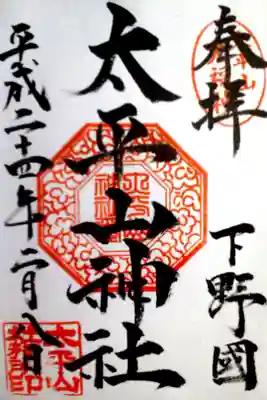 奉拝
下野國
太平山神社
平成二十四年二月八日